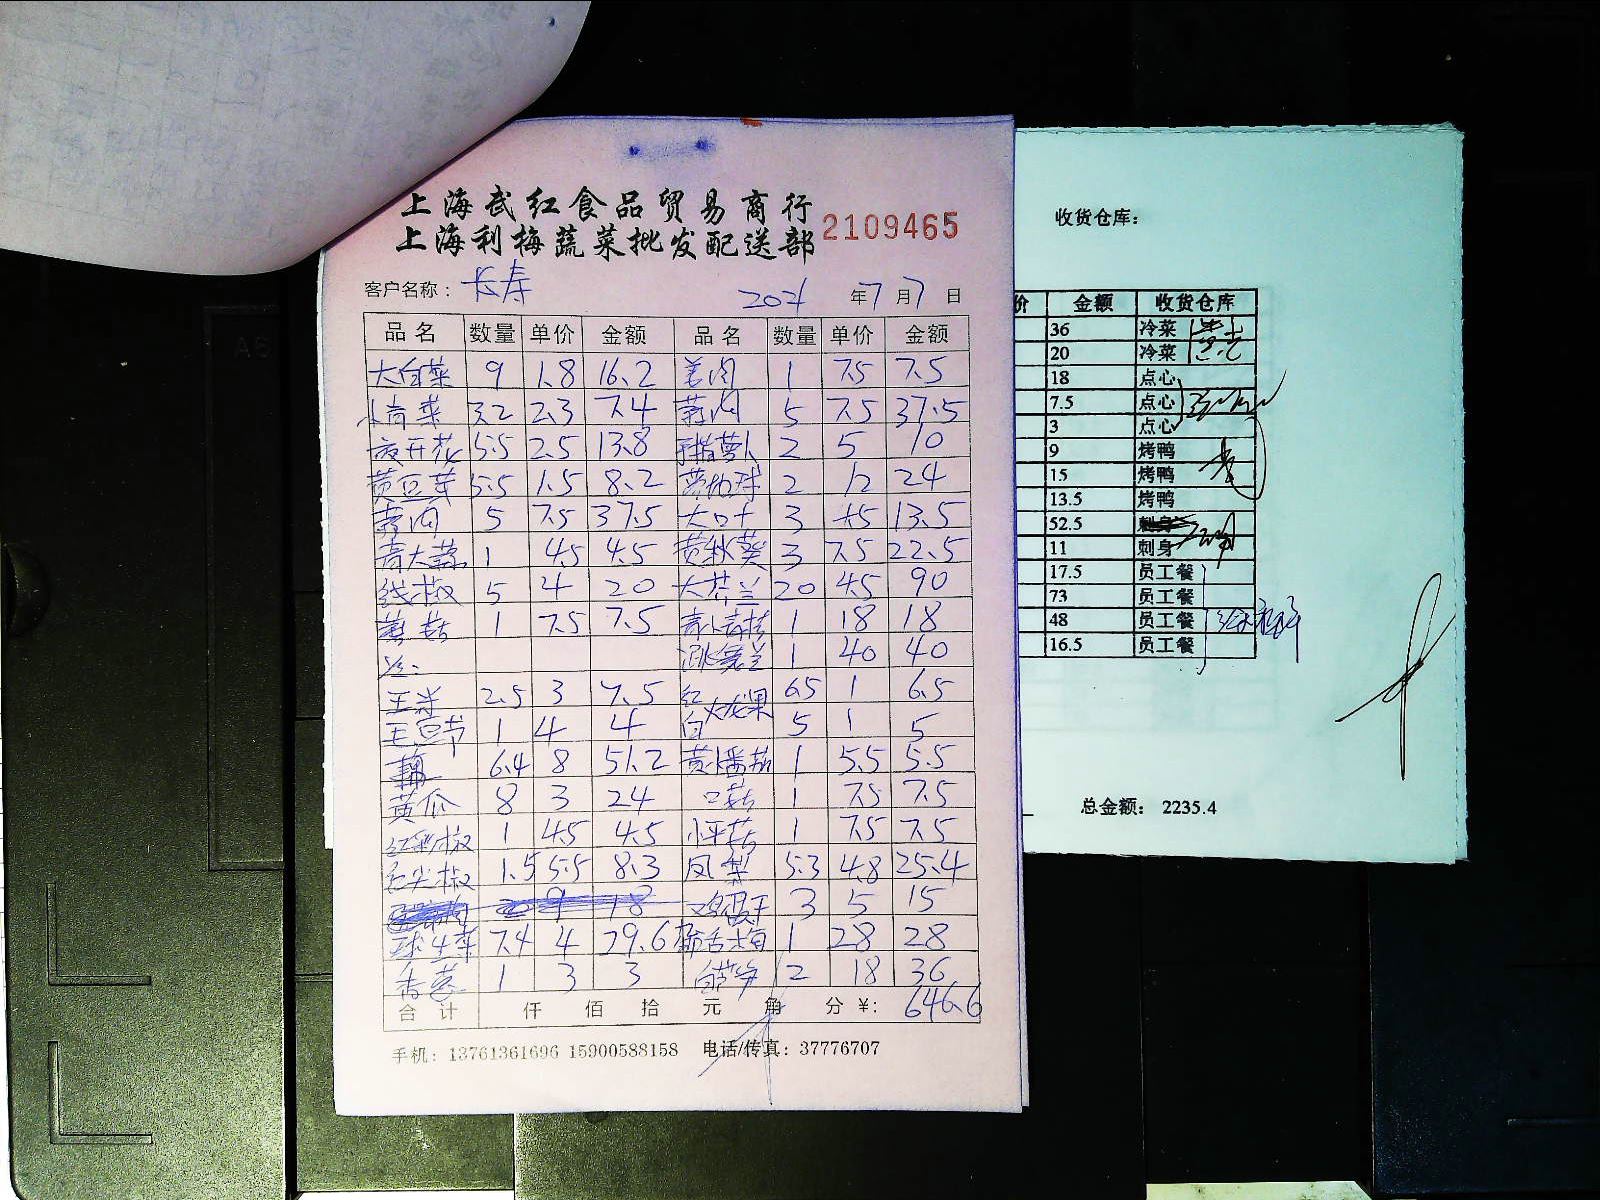 上海武红食品贸易商行
上海利梅蔬菜批发配送部
2109465
客户名称：长寿
2021 年 7 月 7 日
品名 数量 单价 金额 品名 数量 单价 金额
大白菜 9 1.8 16.2 姜肉 1 7.5 7.5
小青菜 3.2 2.3 7.4 蒜肉 5 7.5 37.5
夜开花 5.5 2.5 13.8 手指萝卜 2 5 10
黄豆芽 5.5 1.5 8.2 2 12 24
肉 5 7.5 37.5 大口十 3 4.5 13.5
青大蒜 1 4.5 4.5 黄秋葵 3 7.5 22.5
线椒 5 4 20 大芥兰 20 4.5 90
蘑菇 1 7.5 7.5 1 18 18
1 40 40
玉米 2.5 3 7.5 红 火龙果 6.5 1 6.5
1 4 4 白 5 1 5
藕 6.4 8 51.2 黄番茄 1 5.5 5.5
黄瓜 8 3 24 口菇 1 7.5 7.5
红彩椒 1 4.5 4.5 小平菇 1 7.5 7.5
红尖椒 1.5 5.5 8.3 凤梨 5.3 4.8 25.4
9 18 鸡蛋干 3 5 15
球生菜 7.4 4 29.6 1 28 28
香葱 1 3 3 白芦笋 2 18 36
合计 仟 佰 拾 元 角 分 ¥: 646.6
手机：13761361696 15900588158 电话/传真：37776707
收货仓库：
价 金额 收货仓库
36 冷菜
20 冷菜
18 点心
7.5 点心
3 点心
9 烤鸭
15 烤鸭
13.5 烤鸭
52.5 刺身
11 刺身
17.5 员工餐
73 员工餐
48 员工餐
16.5 员工餐
总金额： 2235.4